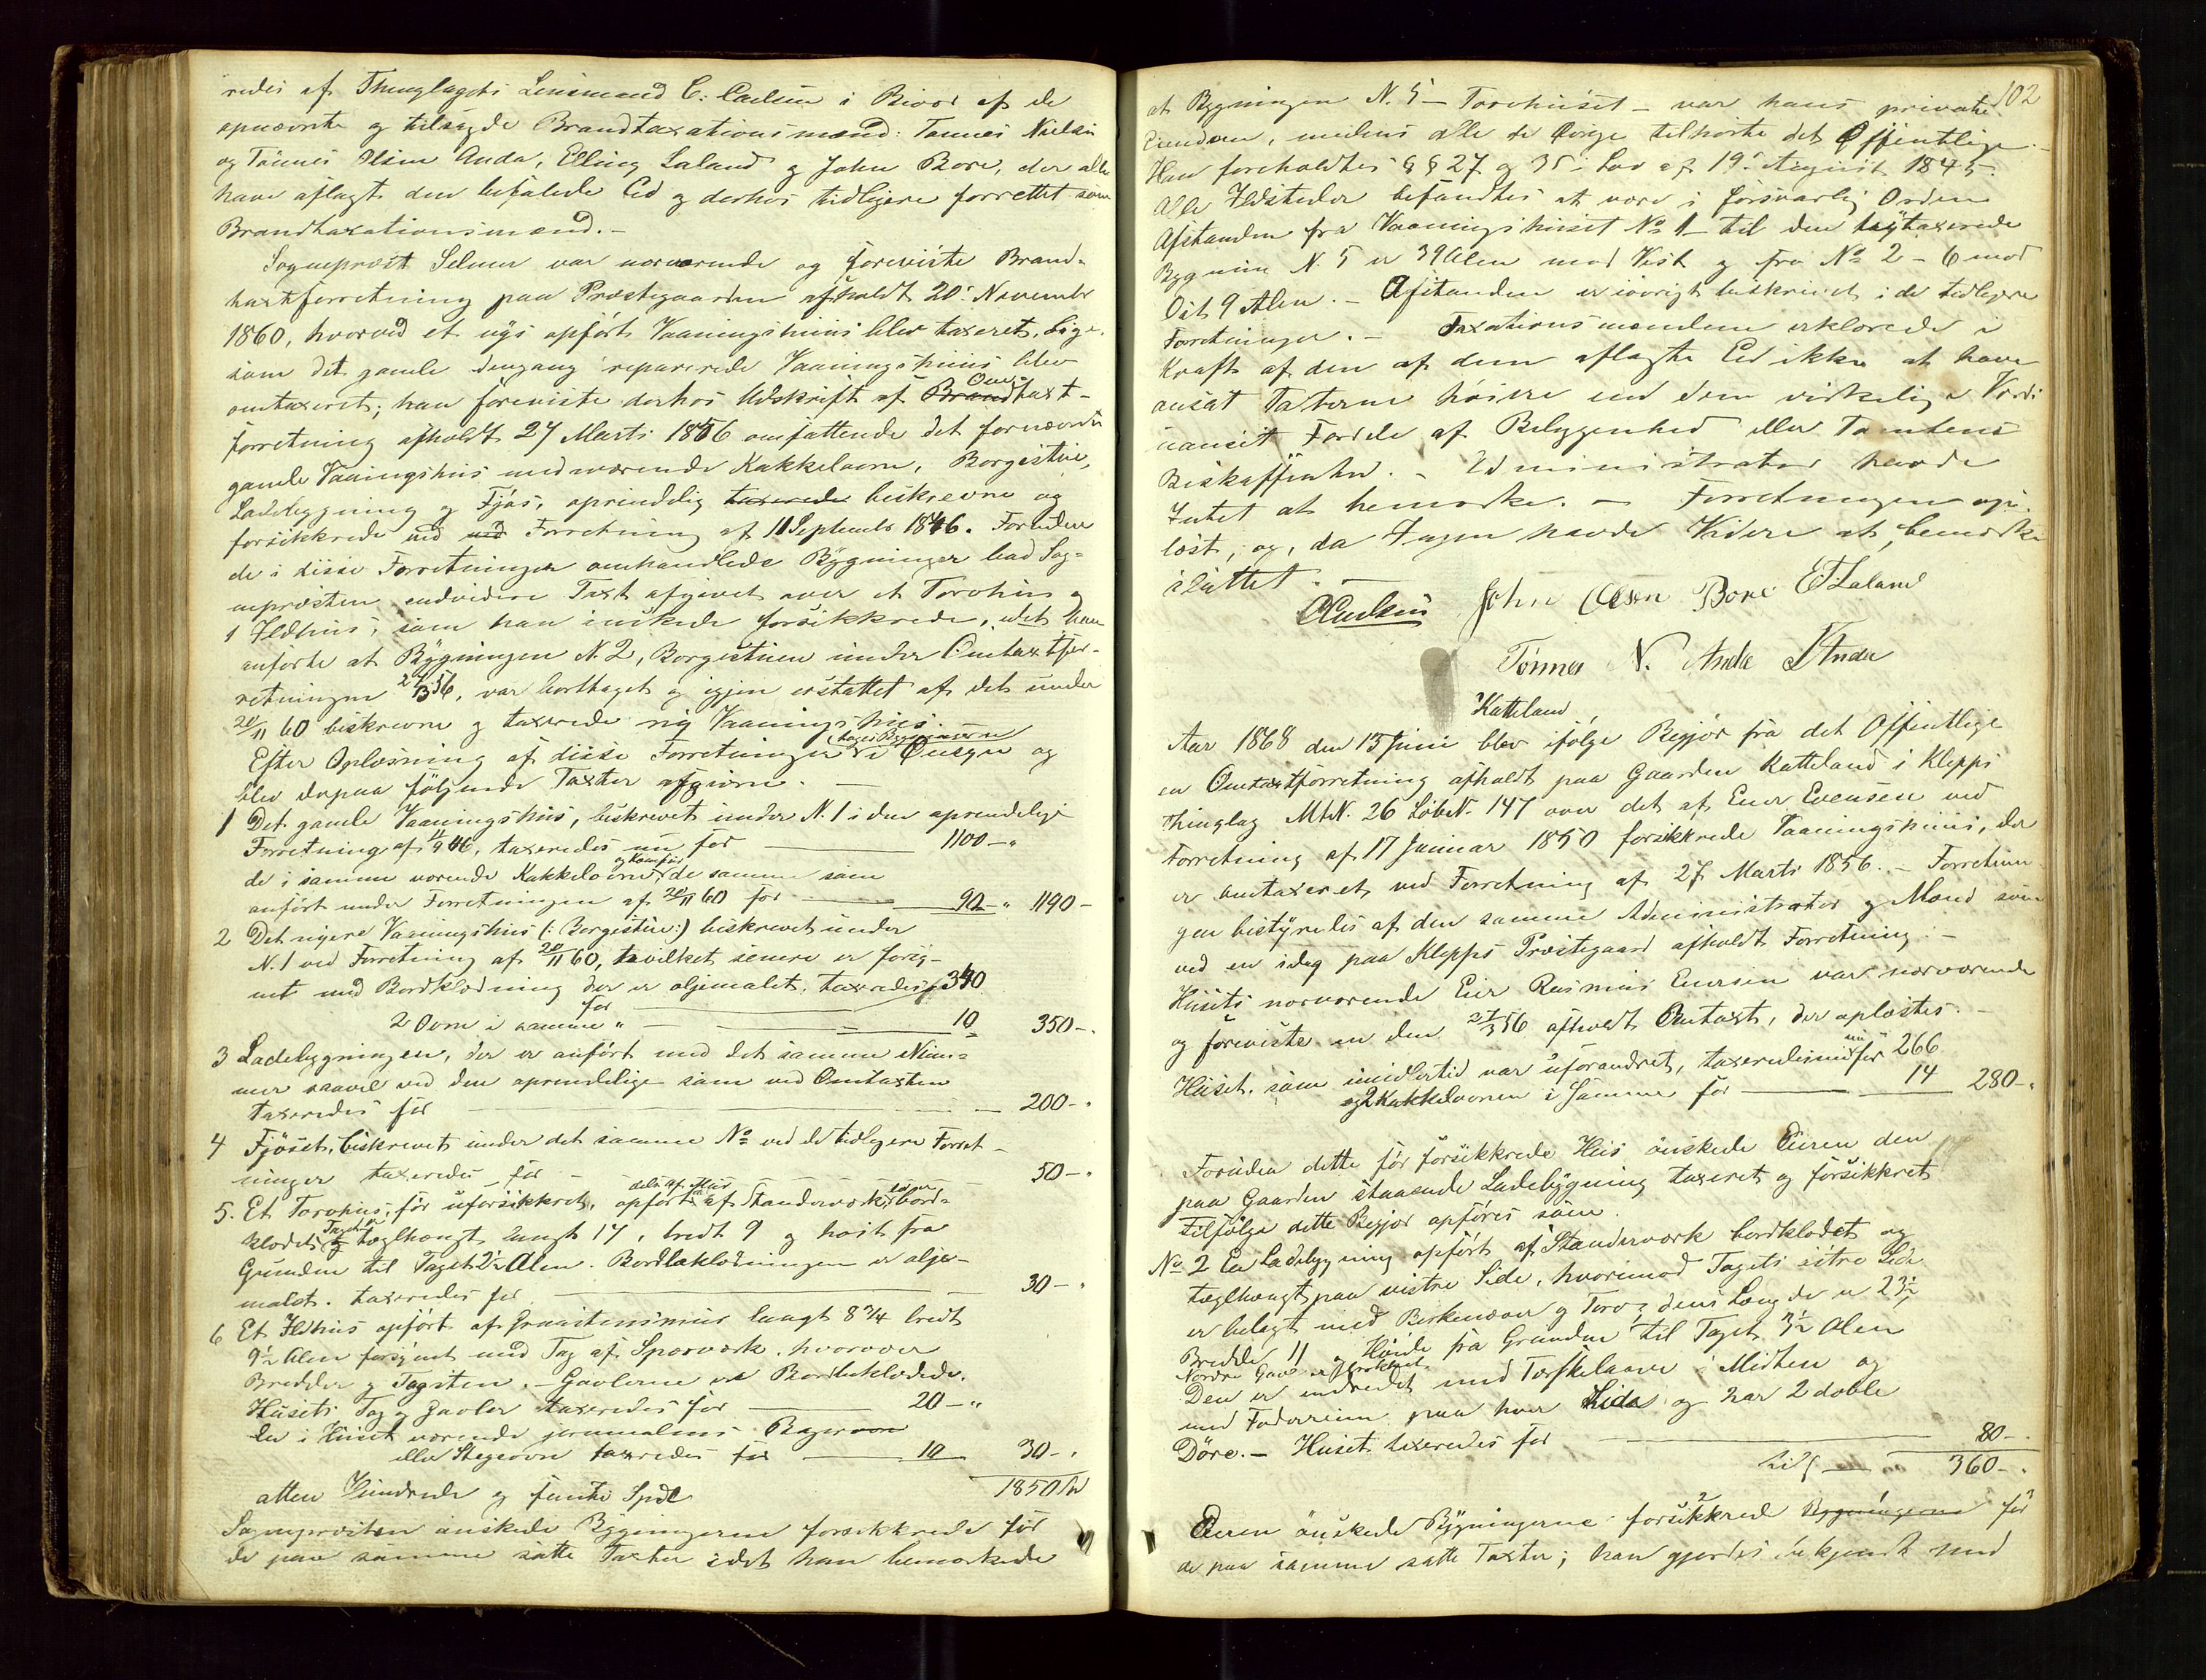 redes af Thinglagets Lensmand C: Carlsen i Bivær af de
opnævnte og tilsagde Brandtaxationsmænd: Tønnes Nielsen
og Tönnes Olsen Anda, Elling Laland og John Bore, der alle
have aflagt den befalede Ed og derhos tidligere forrettet som
Brandtaxationsmænd. -
Sognepræst Selmer var nærværende og foreviste Brand-
taxtforretning paa Præstegaarden afholdt 20de November
1860, hvorved et nys opført Vaaningshuus blev taxeret, lige-
som det gamle dengang reparerede Vaaningshuus blev
omtaxeret; han foreviste derhos Udskrift af Brand Om taxt-
forretning afholdt 27 Marts 1856 omfattende det fornævnte
gamle Vaaningshuus med værende Kakkelovne, Borgestue,
Ladebygning og Fjös, oprindelig taxerede beskrevne og
forsikkrede ved ved Forretning af 11 September 1846. Foruden
de i disse Forretninger omhandlede Bygninger bad Sog-
nepræsten endvidere Taxt afgivet over et Torvhuus og
1 Ildhuus, som han önskede forsikkrede, idet han
anførte at Bygningen N. 2, Borgestuen under Omtaxtfor-
retningen 27/3 56, var borttaget og igjen erstattet af det under
20/11 60 beskrevne og taxerede ny Vaaningshuus.
Efter Oplæsning af disse Forretninger toges Bygningerne i Øiesyn og
blev derpaa følgende Taxter afgivne. -
1 Det gamle Vaaningshuus, beskrevet under N. 1 i den oprindelige
Forretning af 11/9 46, taxeredes nu for 1100 - "
de i samme værende Kakkelovne og Komfur de samme som
anført under Forretningen af 20/11 60 for 90 - " 1190 -
2 Det nyere Vaaningshuus (: Borgestue :) beskrevet under
N. 1 ved Forretning af 20/11 60, hvilket senere er forsy-
net med Bordklædning der er oljemalet. taxeredes for 340
2 Ovne i samme " for 10 350 - "
3 Ladebygningen, der er anført med det samme Num-
mer saavel ved den oprindelige som ved Omtaxten
taxeredes for 200 - "
4 Fjöset, beskrevet under det samme No ved de tidligere Forret-
ninger taxeredes for 50 - "
5. Et Torvhuus, før uforsikkret, opført dels af Muur af Standerværk som er bord-
klædet og Taget er teglhængt Langt 17, bredt 9 og høit fra
Grunden til Taget 2½ Alen. Bordbeklædningen er olje-
malet. taxeredes for 30 - "
6 Et Ildhuus opført af Graasteensmuur langt 8 3/4 bredt
9½ Alen forsynet med Tag af Sparværk, hvorover
Bredder og Tagsten. - Gavlerne er Bordbeklædede.
Husets Tag og Gavler taxeredes for 20 - "
den i Huset værende jernmalms Bagerovn
eller Stegeovn taxeredes for 10 30 - "
atten Hundrede og femti Spdl 1850 Sp
Sognepræsten önskede Bygningerne forsikkrede for
de paa samme satte Taxter idet han bemærkede
102
at Bygningen N. 5 - Torvhuset - var hans private
Eiendom, medens alle de øvrige tilhørte det Offentlige. -
Han foreholdtes §§ 27 og 35 i Lov af 19de August 1845.
Alle Ildsteder befandtes at være i forsvarlig Orden
Afstanden fra Vaaningshuset No 1 til den nytaxerede
Bygning N. 5 er 39 Alen mod Vest og fra No 2 - 6 mod
Øst 9 Alen. - Afstanden er iøvrigt beskrevet i de tidligere
Forretninger. - Taxationsmændene erklærede i
Kraft af den af dem aflagte Eed ikke at have
ansat Taxterne høiere end den virkelige Værdi
uanseet Fordele af Beliggenhed eller Tomtens
Beskaffenhed. - Administrator havde
Intet at bemærke. - Forretningen op-
læst, og, da Ingen havde Videre at bemærke
sluttet. -
CCarlsen John Olsen Bore E Laland
Tönnes N. Anda T Anda
Katteland
Aar 1868 den 15 Juni blev ifølge Begjær fra det Offentlige
en Omtaxtforretning afholdt paa Gaarden Katteland i Klepps
Thinglag MtN. 26 LøbeN. 147 over det af Ener Evensen ved
Forretning af 17 Januar 1850 forsikkrede Vaaningshuus, der
er omtaxeret ved Forretning af 27 Marts 1856. - Forretnin-
gen bestyredes af den samme Administrator og Mænd som
ved en idag paa Klepps Præstegaard afholdt Forretning. -
Husets nærværende Eier Rasmus Enersen var nærværende
og foreviste en den 27/3 56 afholdt Omtaxt, der oplæstes. -
Huset, som imidlertid var uforandret, taxeredes nu for 266
og 2 Kakkelovne i Samme for 14 280 - "
Foruden dette før forsikkrede Huus önskede Eieren den
paa Gaarden staaende Ladebygning taxeret og forsikkret
Tilfølge dette Begjær opføres som.
No 2 En Ladebygning opført af Standerværk bordklædet og
teglhængt paa vestre Side, hvorimod Tagets östre Side
er belagt med Birkenæver og Torv; dens Længde er 23½
Bredde 11 Høide fra Grunden til Taget 4½ Alen
Nordre Gavl er
Den er indredet med Tærskelaave i Midten og
med Foderrum paa hver Side og har 2 doble
Döre. - Huset taxeredes for 80 - "
tils 360 - "
Eieren önskede Bygningerne forsikkrede Bygningerne for
de paa samme satte Taxter; han gjordes bekjendt med